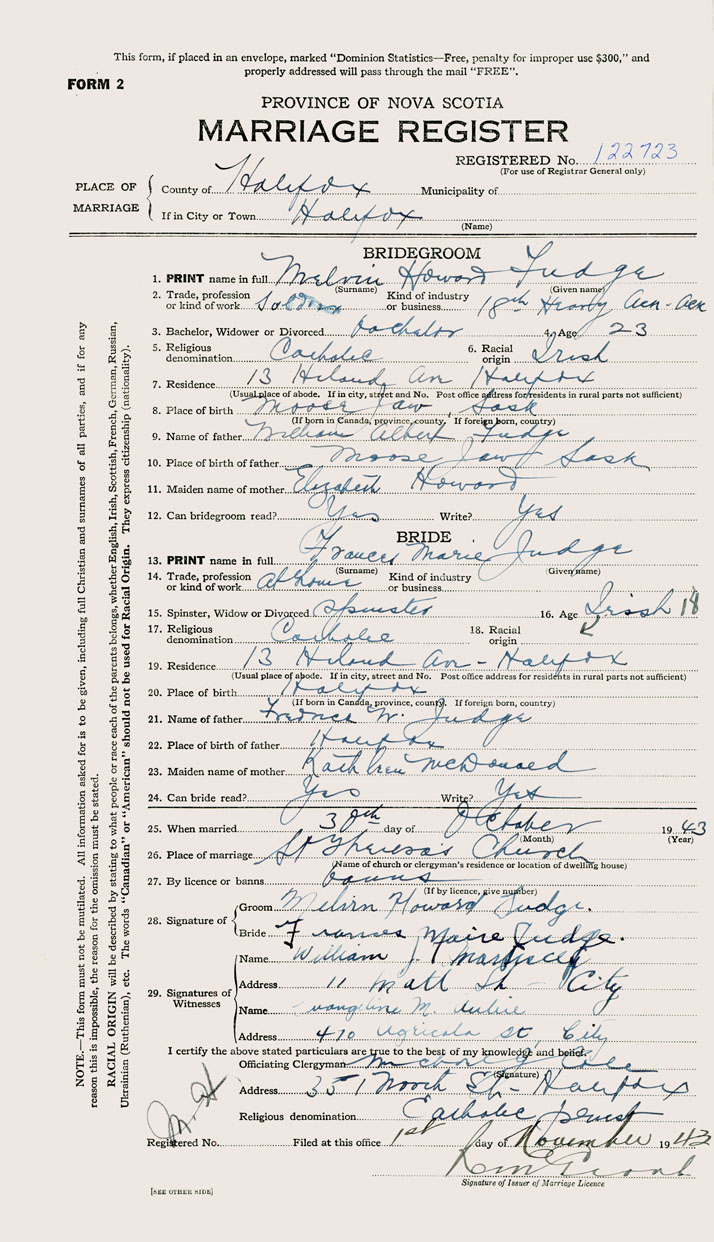 This form, if placed in an envelope, marked "Dominion Statistics—Free, penalty for improper use $300," and
properly addressed will pass through the mail "FREE".
FORM 2
PROVINCE OF NOVA SCOTIA
MARRIAGE REGISTER
REGISTERED No. 122723
(For use of Registrar General only)
PLACE OF MARRIAGE
County of Halifax Municipality of
If in City or Town Halifax
(Name)
BRIDEGROOM
1. PRINT name in full Melvin Howard Judge
(Surname) (Given name)
2. Trade, profession or kind of work Soldier Kind of industry or business 18th Heavy Ack-Ack
3. Bachelor, Widower or Divorced bachelor 4. Age 23
5. Religious denomination Catholic 6. Racial origin Irish
7. Residence 13 Hiland Av Halifax
(Usual place of abode. If in city, street and No. Post office address for residents in rural parts not sufficient)
8. Place of birth Moose Jaw, Sask
(If born in Canada, province, county. If foreign born, country)
9. Name of father William Albert Judge
10. Place of birth of father Moose Jaw Sask
11. Maiden name of mother Elizabeth Howard
12. Can bridegroom read? Yes Write? Yes
BRIDE
13. PRINT name in full Frances Marie Judge
(Surname) (Given name)
14. Trade, profession or kind of work At home Kind of industry or business
15. Spinster, Widow or Divorced Spinster 16. Age Irish 18
17. Religious denomination Catholic 18. Racial origin
19. Residence 13 Hiland Av - Halifax
(Usual place of abode. If in city, street and No. Post office address for residents in rural parts not sufficient)
20. Place of birth Halifax
(If born in Canada, province, county. If foreign born, country)
21. Name of father Francis W. Judge
22. Place of birth of father Halifax
23. Maiden name of mother Kathleen McDonald
24. Can bride read? Yes Write? Yes
25. When married 30th day of October 1943
(Month) (Year)
26. Place of marriage St Theresa's Church
(Name of church or clergyman's residence or location of dwelling house)
27. By licence or banns banns
(If by licence, give number)
28. Signature of
Groom Melvin Howard Judge.
Bride Frances Maire Judge.
29. Signatures of Witnesses
Name William J.
Address 11 Matt St - City
Name M.
Address 470 Agricola st. City
I certify the above stated particulars are true to the best of my knowledge and belief.
Officiating Clergyman Michael J Cole
(Signature)
Address 351 North St - Halifax
Religious denomination Catholic priest
Registered No. Filed at this office 1st day of November 1943
Signature of Issuer of Marriage Licence
[SEE OTHER SIDE]
NOTE.—This form must not be mutilated. All information asked for is to be given, including full Christian and surnames of all parties, and if for any
reason this is impossible, the reason for the omission must be stated.
RACIAL ORIGIN will be described by stating to what people or race each of the parents belongs, whether English, Irish, Scottish, French, German, Russian,
Ukrainian (Ruthenian), etc. The words "Canadian" or "American" should not be used for Racial Origin. They express citizenship (nationality).